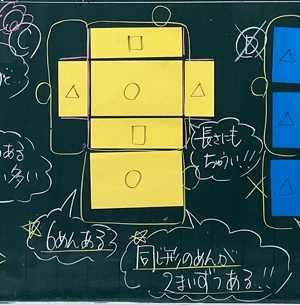 長さにも
ちゅうい!!
ある
い多い
6めんある
同じ形のめんが
2まいずつある!!